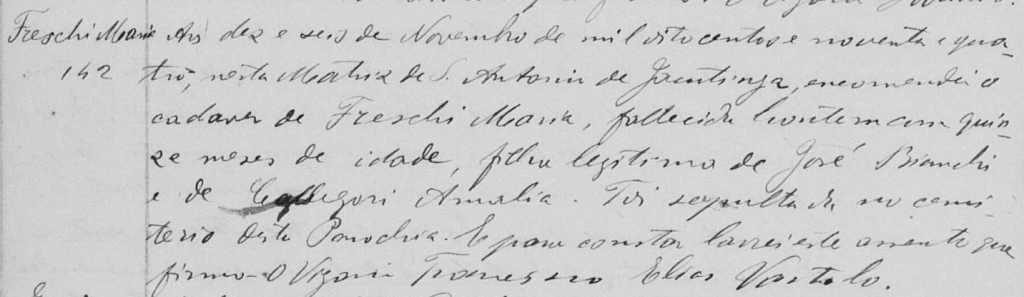 Freschi Maria Aos dez e seis de Novembro de mil oitocentos e noventa e qua-
142 tro, nesta Matriz de S. Antonio de Jacutinga, encomendei o
cadaver de Freschi Maria, fallecida hontem com quin-
ze mezes de idade, filha legitima de José Bianchi
e de Callegori Amalia. Foi sepultada no cemi-
terio desta Parochia. E para constar lavrei este assento que
firmo. O Vigario Francesco Elias Vartolo.